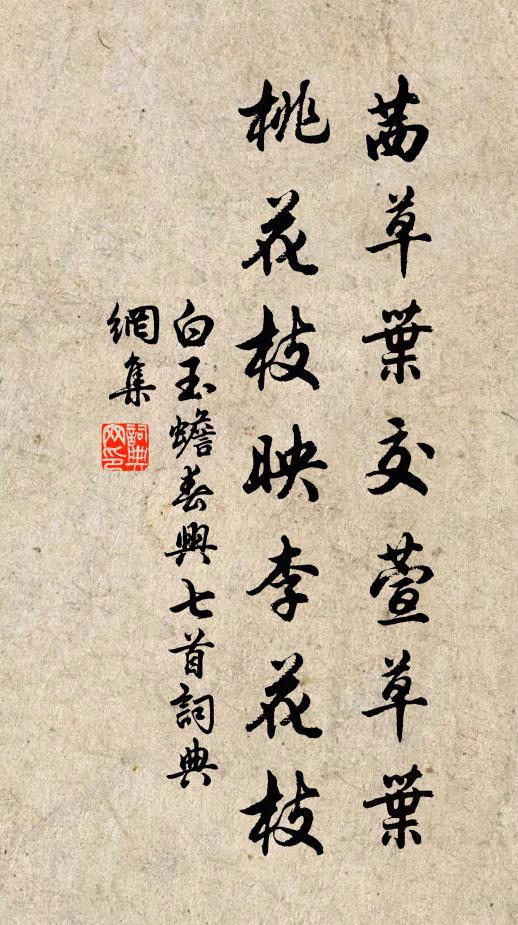 茜草葉交萱草葉
桃花枝映李花枝
白玉蟾春興七首詞典
網集
詞典網印